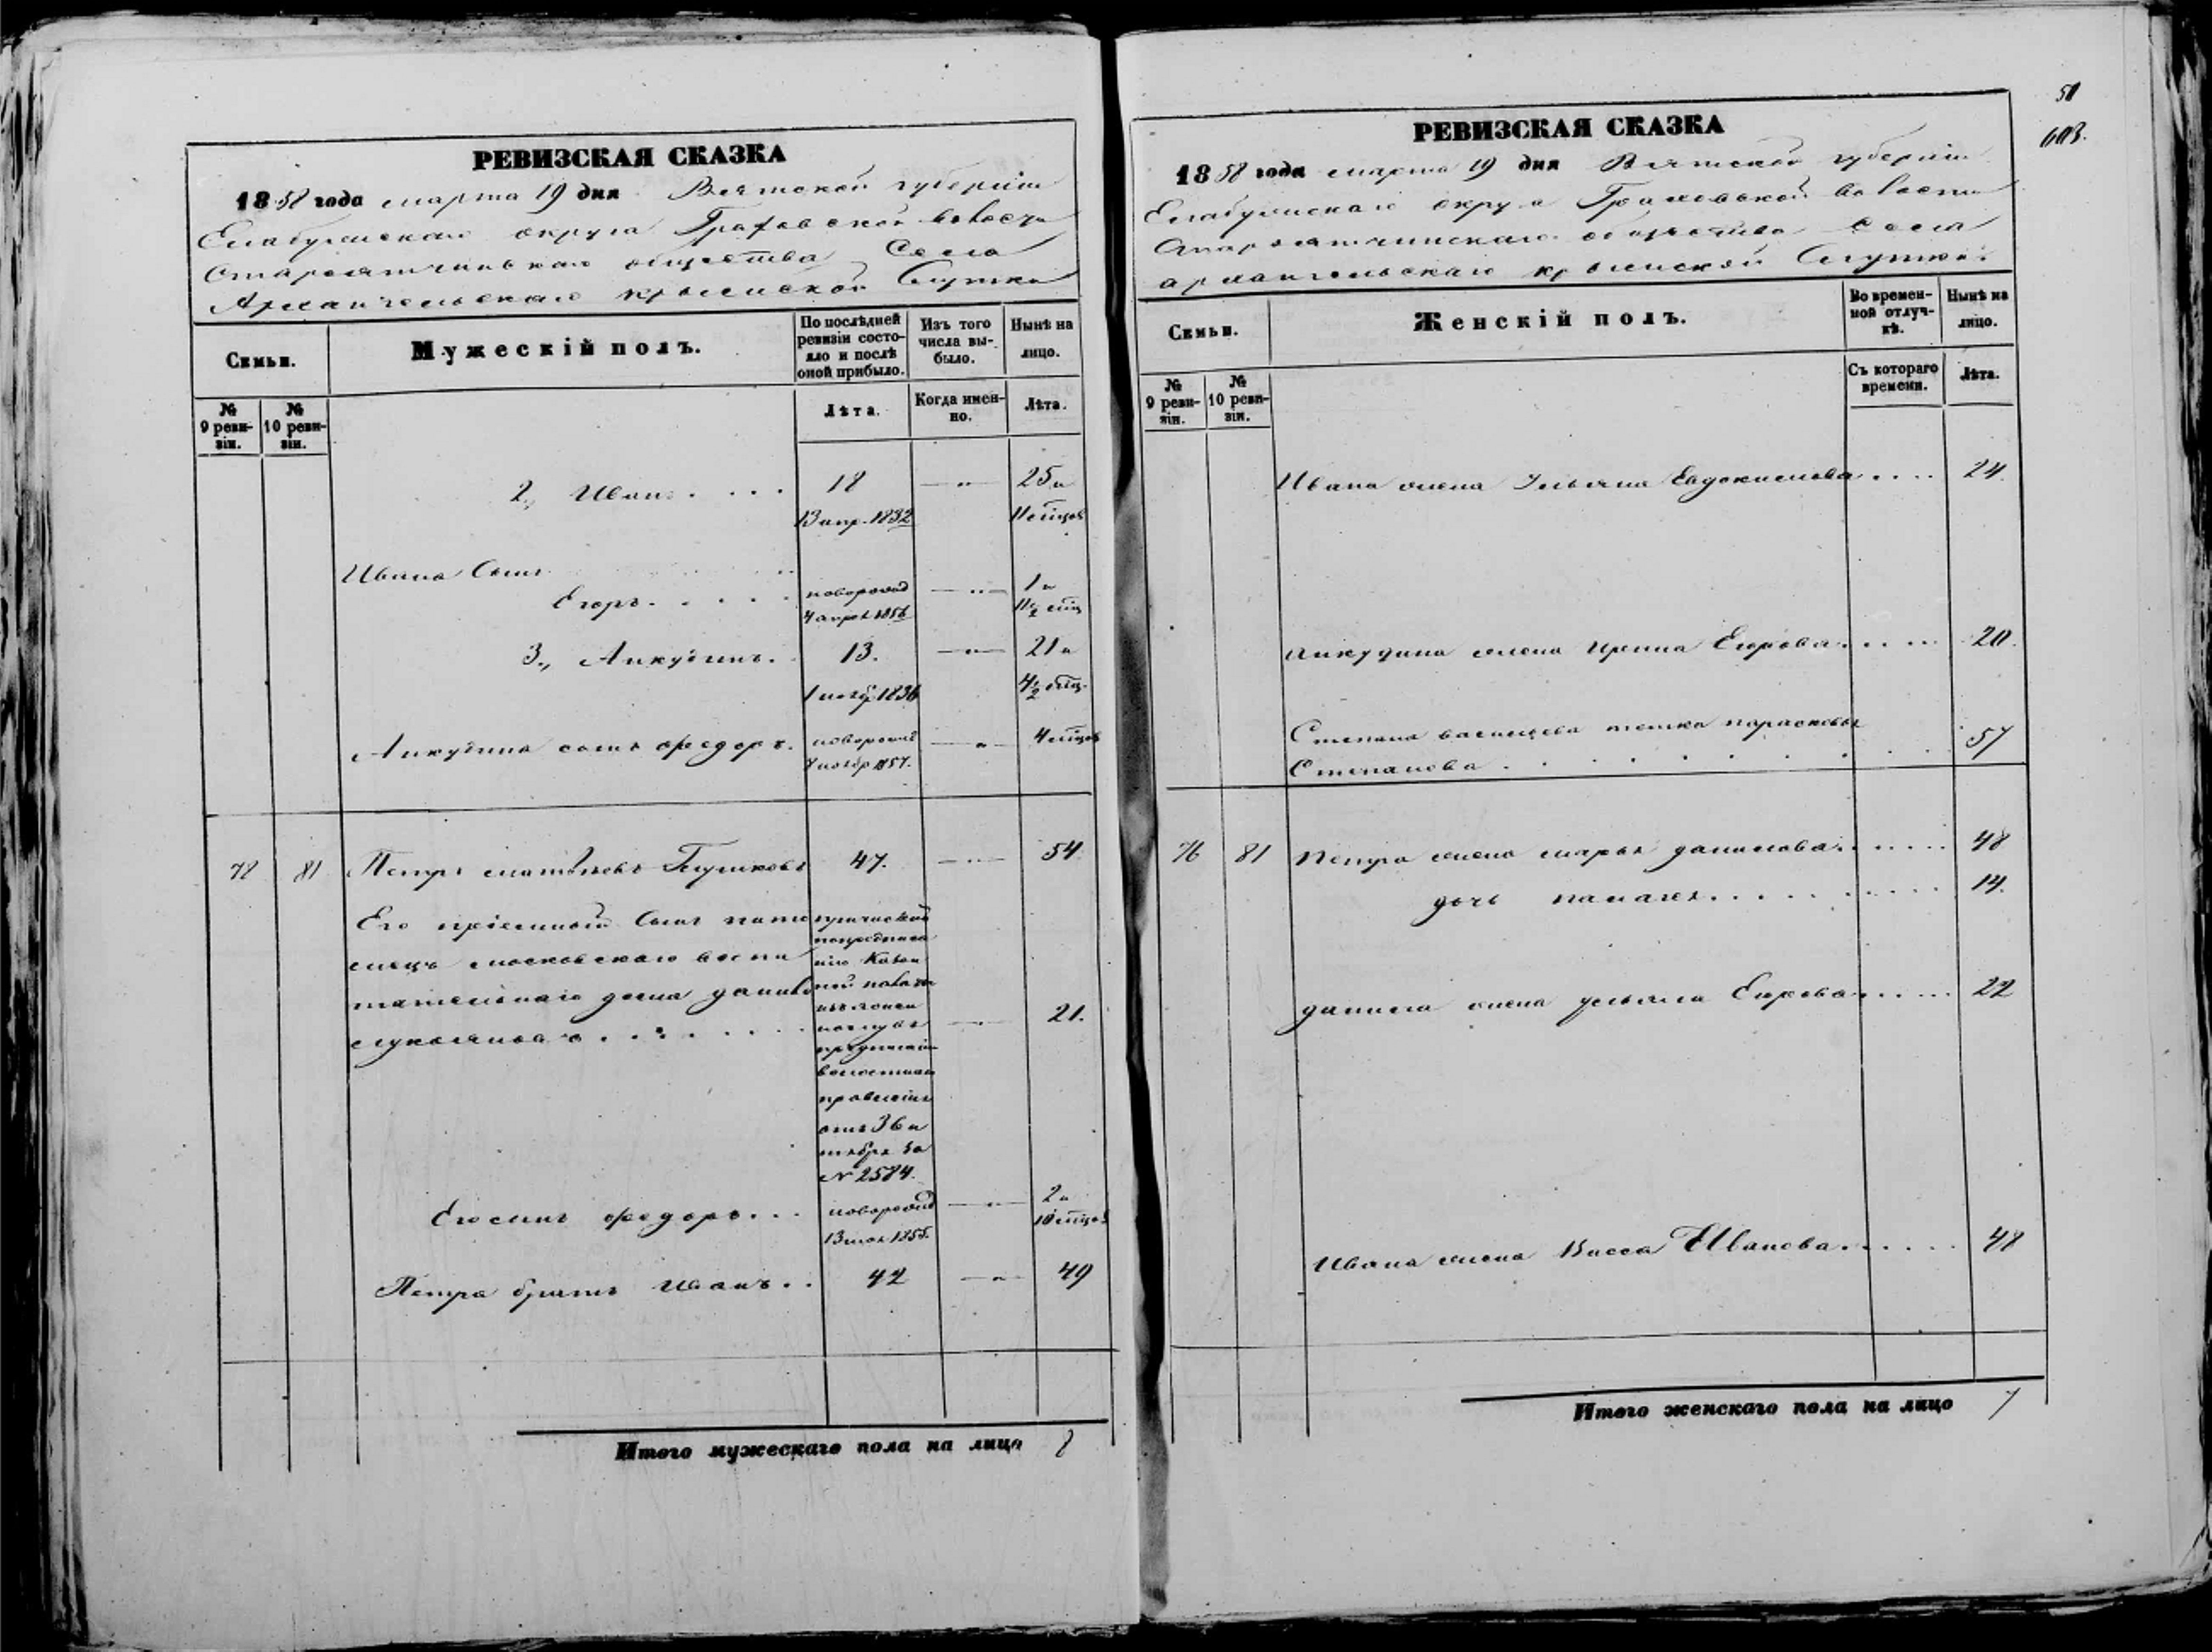 РЕВИЗСКАЯ СКАЗКА
1858 года марта 19 дня Вятской губерніи
Елабужскаго округа Граховской волости
Староятчинскаго общества Села
Архангельскаго крымской Слутки
Семьи.
Мужескій полъ.
По послѣдней ревизіи состояло и послѣ оной прибыло.
Изъ того числа выбыло.
Нынѣ на лицо.
№ 9 ревизіи.
№ 10 ревизіи.
Лѣта.
Когда именно.
Лѣта.
2., Иванъ . . . . 18 — „ — 25 и
13 апр. 1832 11 мѣцов
Ивана Сынъ
Егоръ . . . . новорожд — „ — 1 и
4 апрел 1856 11½ мѣц
3., Анкудинъ. 13. — „ — 21 и
1 нояб. 1836 4½ мѣц.
Анкудина сынъ Федоръ. новорожд — „ — 4 мѣцов
7 ноябр 1857.
78 81 Петръ Матвѣевъ Глушковъ 47. — „ — 54.
Его пріемный Сынъ пито
мецъ московскаго воспи
тательнаго дома Данило
Лукьяновъ . . . . . . — „ — 21.
причислен
волостнаго
правленія
за
№ 2584.
Его сынъ Федоръ . . . новорожд — „ — 2 и
13 мая 1855. 10 мѣцов
Петра братъ Иванъ . . 42 — „ — 49
Итого мужескаго пола на лицо 8
51
603.
РЕВИЗСКАЯ СКАЗКА
1858 года марта 19 дня Вятской губерніи
Елабужскаго округа Граховской волости
Староятчинскаго общества села
архангельскаго крымской Слутки.
Семьи.
Женскій полъ.
Во временной отлучкѣ.
Нынѣ на лицо.
№ 9 ревизіи.
№ 10 ревизіи.
Съ котораго времени.
Лѣта.
Ивана жена Ульяна Евдокимова . . . . 24.
Анкудина жена Ирина Егорова . . . . 20.
Степана васильева тетка парасковья
Степанова . . . . . . . . 57
76 81 Петра жена марья данилова . . . . . . 48
дочь палагея . . . . . . . . . 14.
данила жена ульяна Егорова . . . . . 22
Ивана жена Васса Иванова . . . . . . 48
Итого женскаго пола на лицо 7